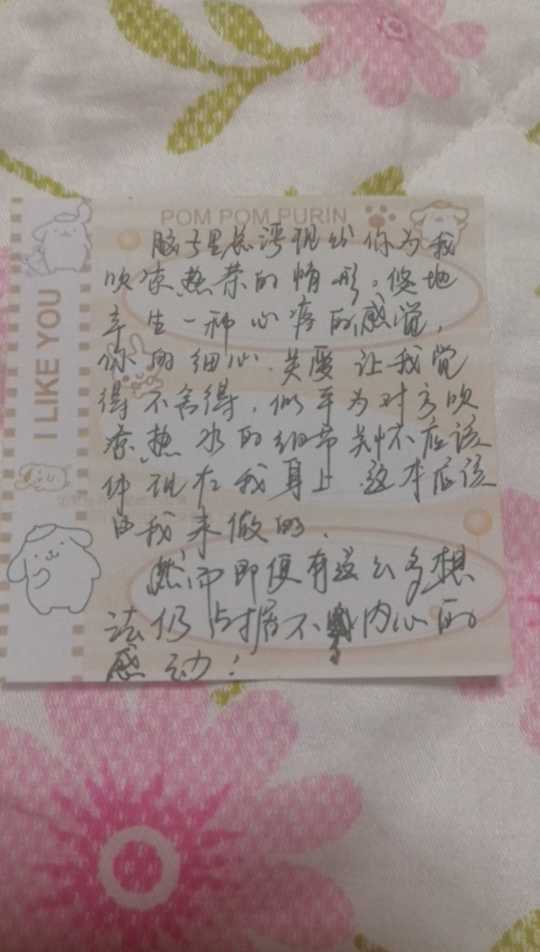 POM POM PURIN
I LIKE YOU
脑子里总浮现纷你为我
吹凉热茶的情形。倏地
产生一种心疼的感觉,
你的细心.关爱让我觉
得不舍得,似乎为对方吹
凉热水的细节关怀不应该
体现在我身上.这本应该
由我来做的.
然而即便有这么多想
法仍占据不内心的
感动!